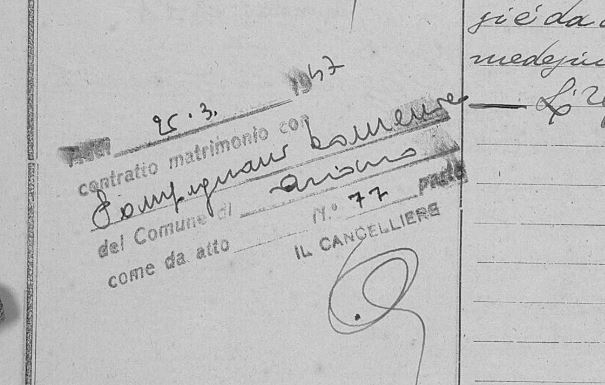 Addì 25.3. 1947
contratto matrimonio con
Pompignano
del Comune di Ariano
come da atto N.° 77 parte
IL CANCELLIERE
già da